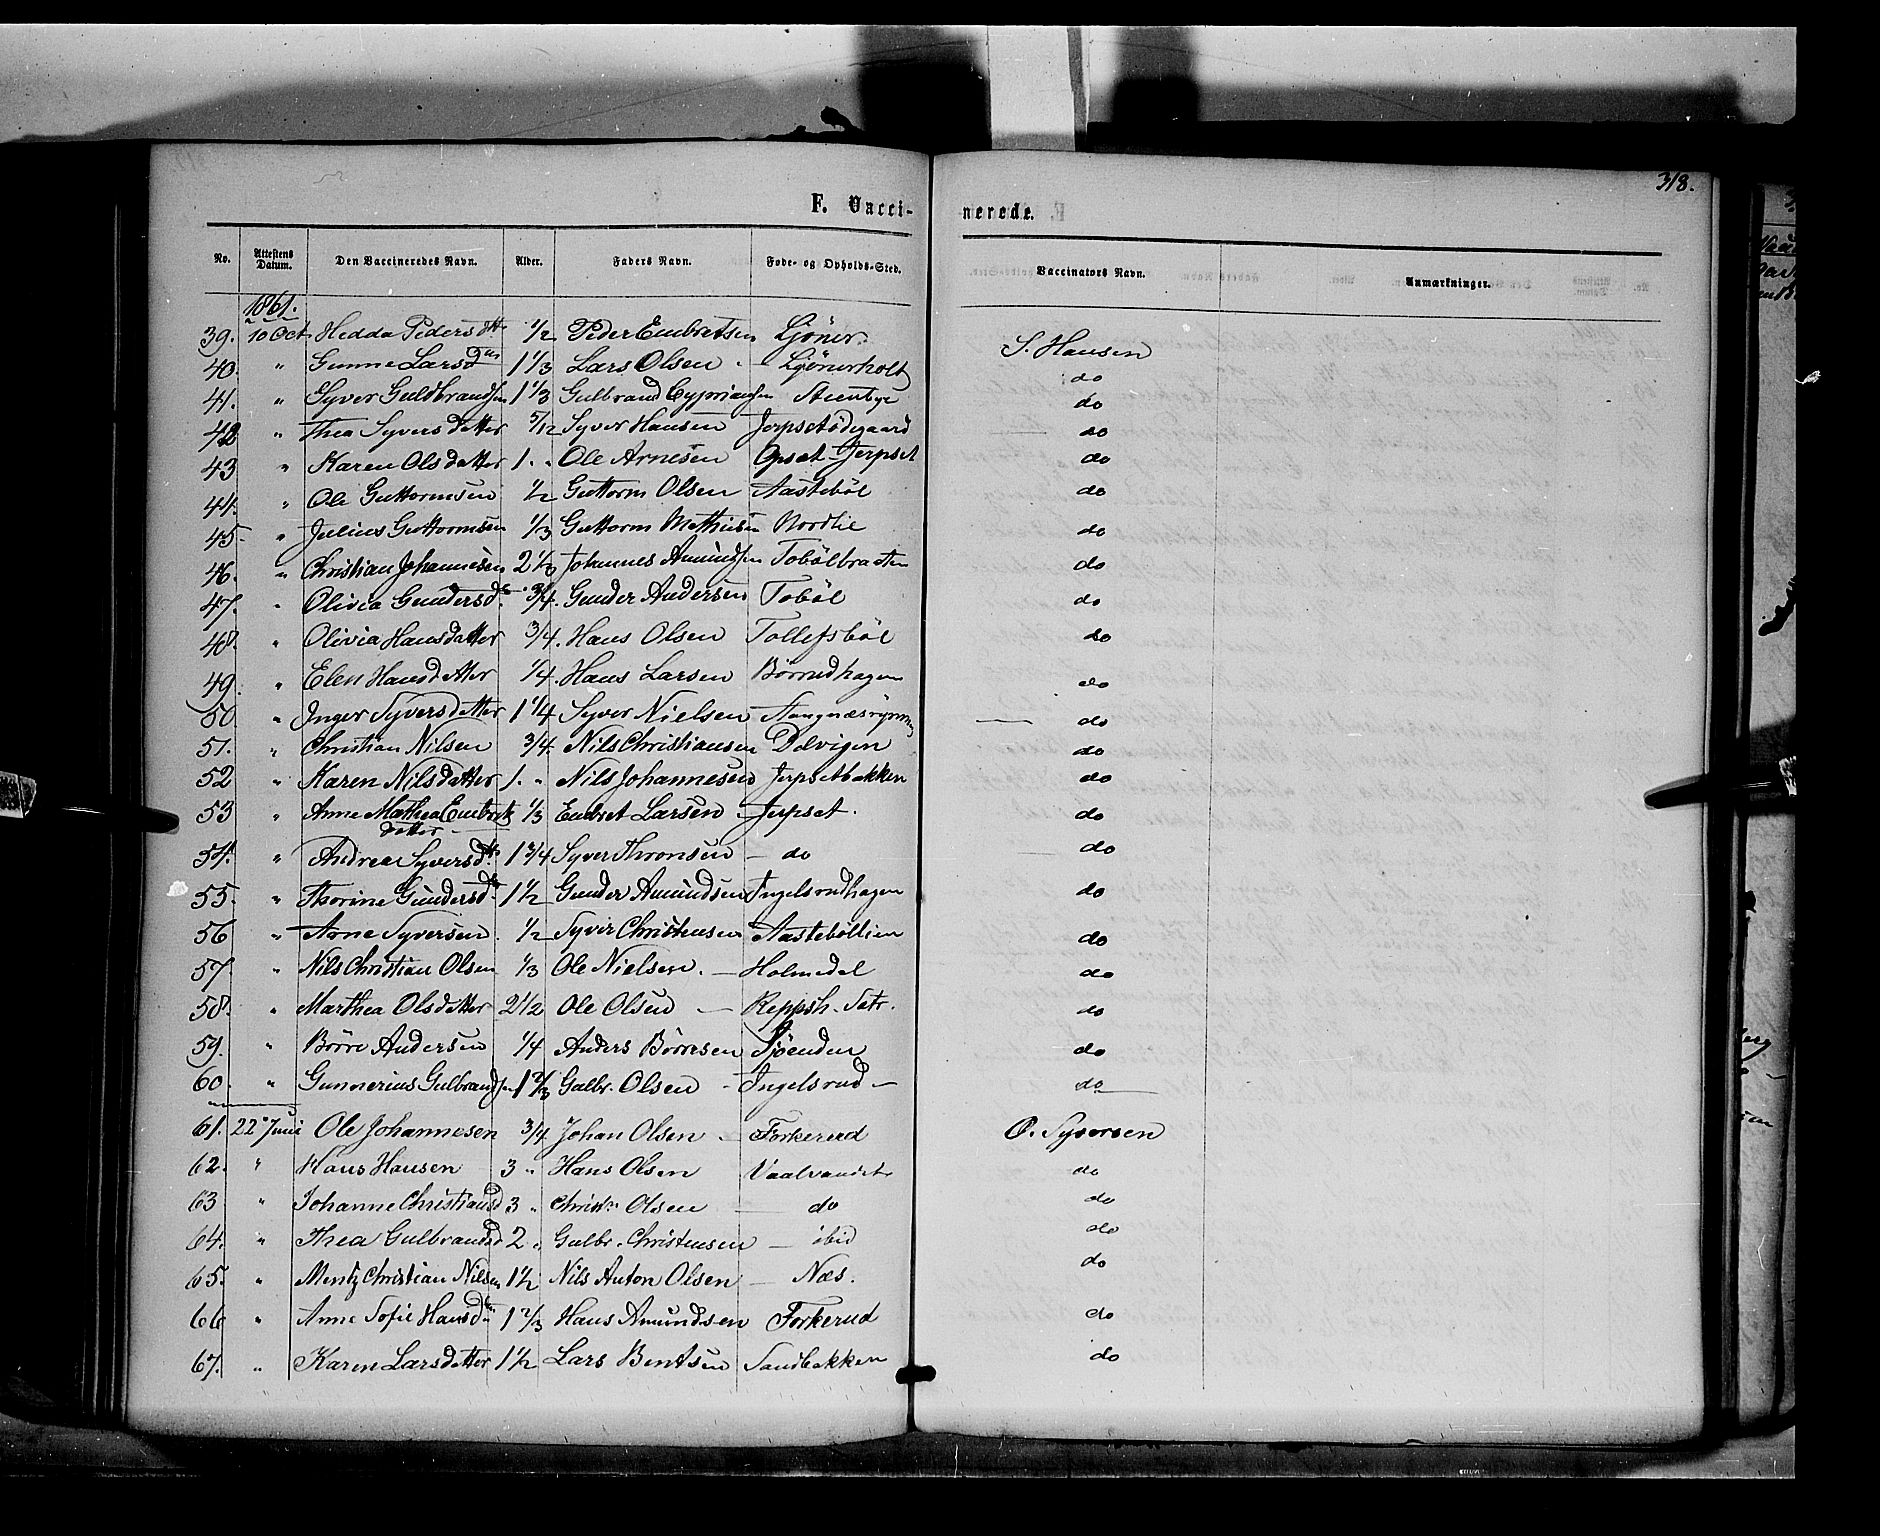 318.
F. Vacci-nerede.
No. Attestens Datum. Den Vaccineredes Navn. Alder. Faders Navn. Føde- og Opholds-Sted. Vaccinators Navn. Anmærkninger.
1861.
39. 10 Oct Hedda Pedersdtr 1/2 Peder Embretsen Ljöner. S. Hansen
40. " Gunne Larsdtr 1 1/3 Lars Olsen - Ljönerholt do
41. " Syver Guldbrandsen 1 1/3 Gulbrand Cypriansen Steenbye do
42 " Thea Syversdatter 5/12 Syver Hansen Jerpsetödegaard do
43 " Karen Olsdatter 1. " Ole Arnesen Opset-Jerpset do
44. " Ole Guttormsen 1/2 Guttorm Olsen Aasteböl do
45. " Julius Guttormsen 1/3 Guttorm Mathisen Nordlie do
46. " Christian Johannesen 2 1/3 Johannes Amundsen Tobölbraaten do
47. " Olivia Gundersd. 3/4. Gunder Andersen Toböl do
48. " Olivia Hansdatter 3/4. Hans Olsen Tollefsböl do
49. " Elen Hansdatter 1/4. Hans Larsen Börrudhagen do
50. " Inger Syversdatter 1 1/4 Syver Nielsen do
51. " Christian Nilsen 3/4. Nils Christiansen Delvigen do
52 " Karen Nilsdatter 1. " Nils Johannesen Jerpsetbakken do
53 " Anne Mathea Embretsdatter 1/3 Embret Larsen Jerpset. do
54. " Andrea Syversdtr 1 3/4 Syver Thronsen - do do
55. " Thorine Gundersd. 1 1/2 Gunder Amundsen Ingelsrudhagen do
56 " Arne Syversen 1/2 Syver Christensen Aasteböllien do
57. " Nils Christian Olsen 1/3 Ole Nielsen. - Holmedal do
58. " Marthea Olsdatter 2 1/2 Ole Olsen - Reppsh. Sætr. do
59. " Börre Andersen 1/4 Anders Börresen Sjöenden do
60. " Gunnerius Gulbrandsen 1 2/3 Gulbr. Olsen - Ingelsrud - do
61. 22 Juni Ole Johannesen 3/4 Johan Olsen - Forkerud O. Syversen
62. " Hans Hansen 3 " Hans Olsen Vaalvandet do
63 " Johanne Christiansd 3 " Christ. Olsen - do do
64. " Thea Gulbrandsd 2 " Gulbr. Christensen - ibid do
65. " Mentz Christian Nilsen 1 1/2 Nils Anton Olsen - Næs. do
66 " Anne Sofie Hansd. 1 2/3 Hans Amundsen Forkerud do
67. " Karen Larsdatter 1 1/2 Lars Bentsen Sandbakken do